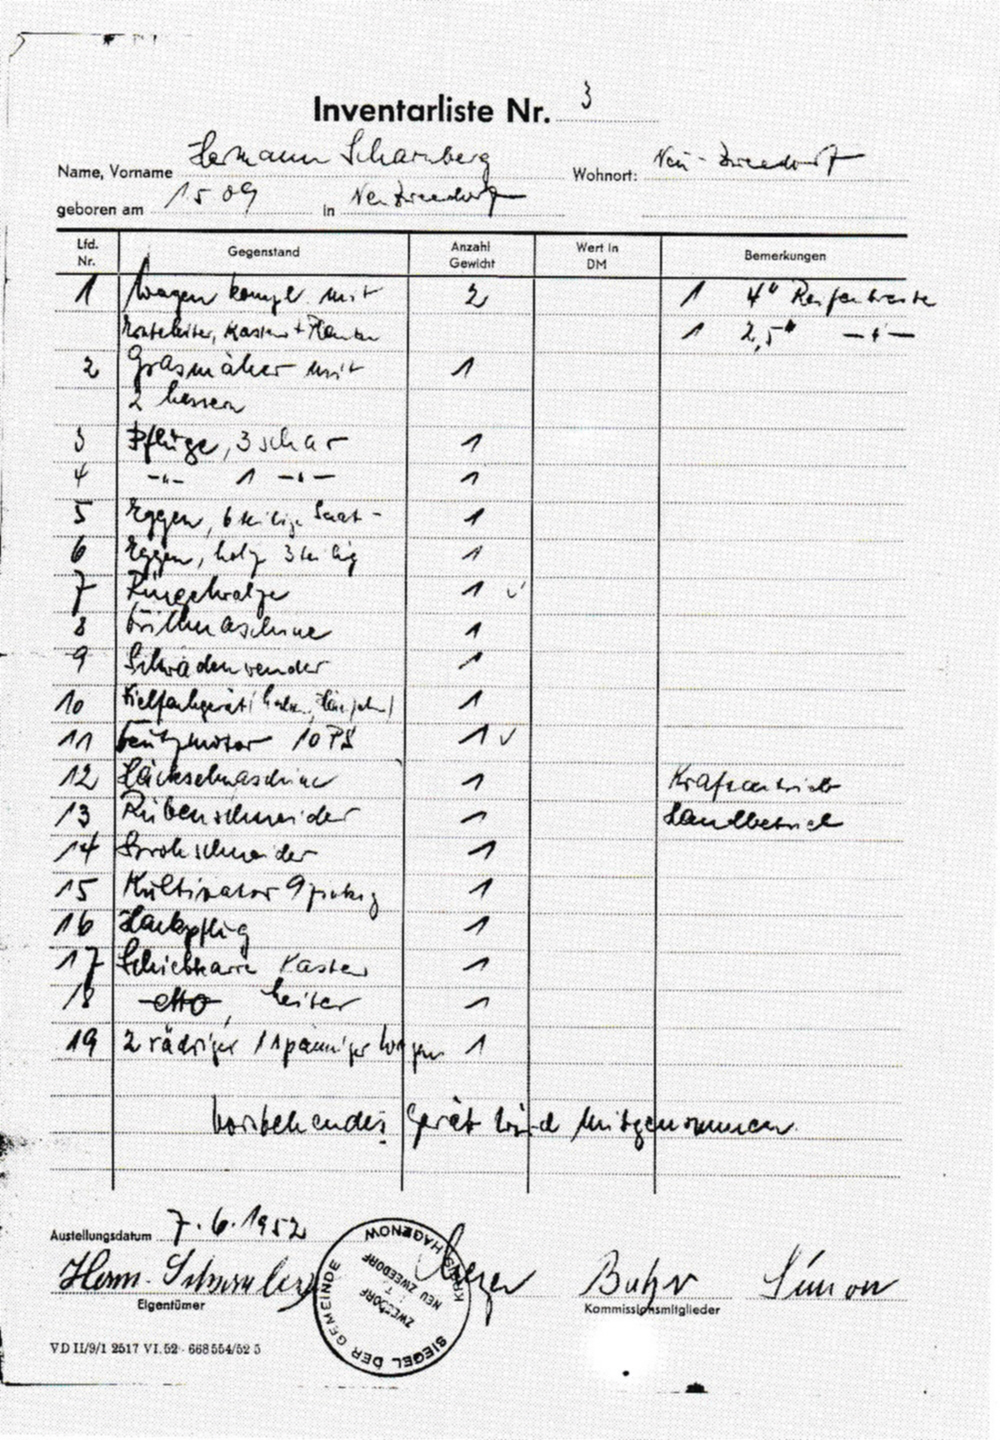 Inventarliste Nr. 3
Name, Vorname Hermann Scharnberg Wohnort: Neu-Zweedorf
geboren am 1509 in Neu Zweedorf
Lfd. Nr. Gegenstand Anzahl Gewicht Wert in DM Bemerkungen
1 Wagen kompl. mit 2 1 4" Reifenbreite
Ernteleiter, Kasten + Planken 1 2,5" —"—
2 Grasmäher mit 1
2 Messern
3 Pflüge, 3 schar 1
4 -"- 1 -"- 1
5 Eggen, 6 teilige Saat- 1
6 Eggen, holz 3teilig 1
7 Ringelwalze 1 ✓
8 Drillmaschine 1
9 Schwadenwender 1
10 Vielfachgerät 1
11 Deutzmotor 10 PS 1 ✓
12 Häckselmaschine 1 Kraftantrieb
13 Rübenschneider 1 Handbetrieb
14 Strohschneider 1
15 Kultivator 9zinkig 1
16 Hackpflug 1
17 Schiebkarre Kasten 1
18 -dtto-, Leiter 1
19 2 rädriger 1spänniger Wagen 1
Vorstehendes Gerät wird mitgenommen.
Austellungsdatum 7.6.1952
Herm. Scharnberg Butzr Simon
Eigentümer Kommissionsmitglieder
SIEGEL DER GEMEINDE KREIS HAGENOW
ZWEEDORF
NEU ZWEEDORF
VD II/9/1 2517 VI.52 - 668 554/52 5